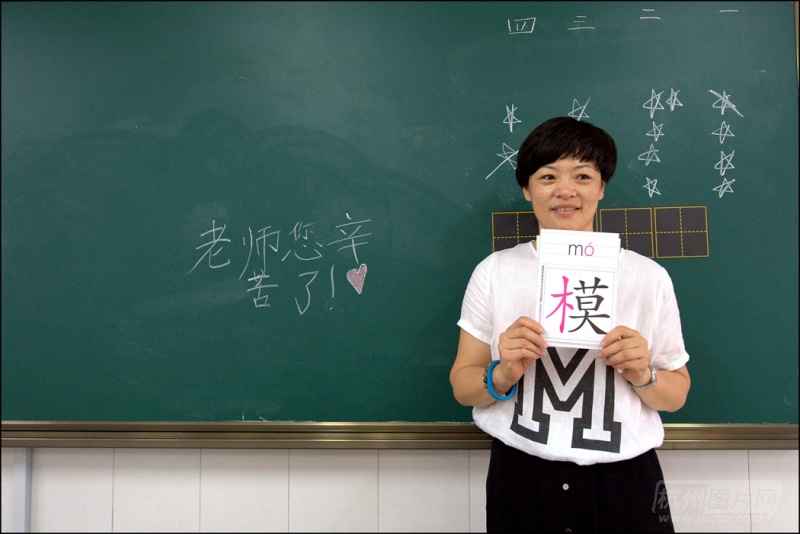 四 三 二 一
老师您辛
苦了!
mó
模
M
杭州图片网
www.picbz.com